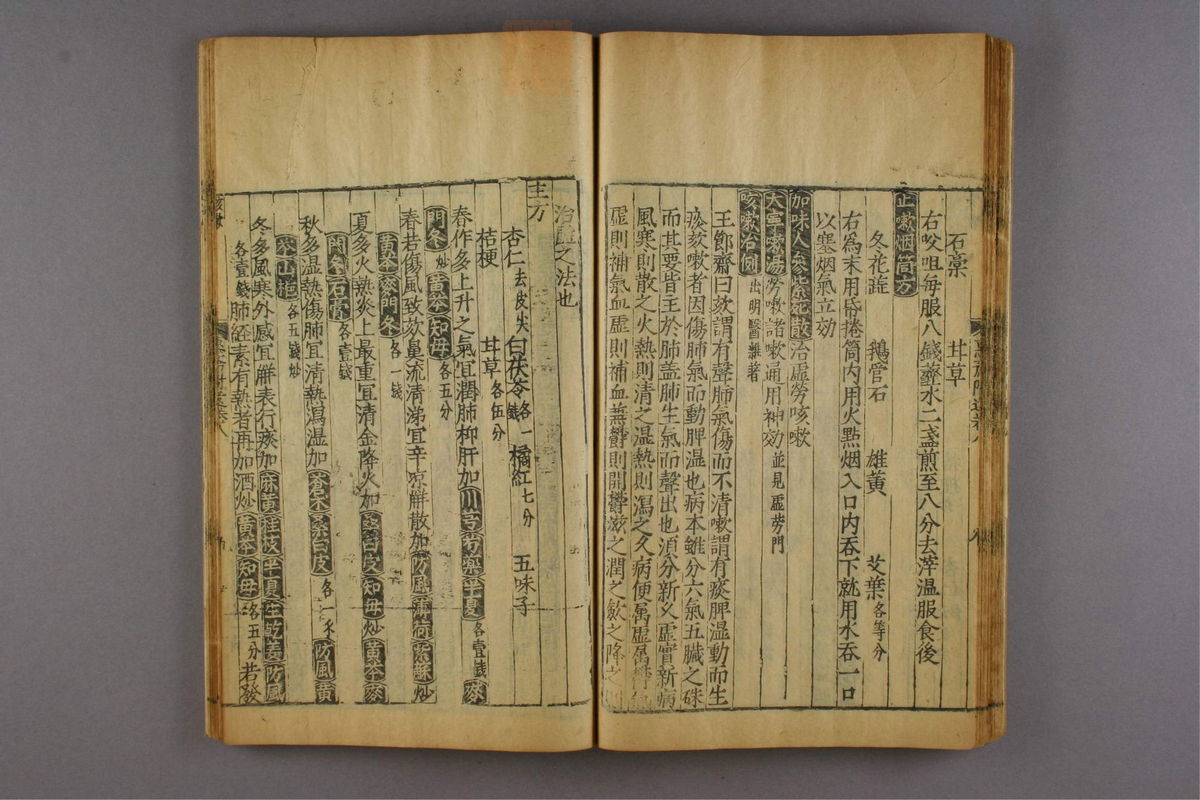 石藁 甘草
右㕮咀每服八錢虀水二盞煎至八分去滓溫服食後
止嗽烟筒方
冬花蕋 鵝管石 雄黃 艾葉各等分
右爲末用帋捲筒内用火點烟入口内吞下就用水吞一口
以塞烟氣立効
加味人參紫菀散治虛勞咳嗽
大寧嗽湯勞嗽諸嗽通用神効並見虛勞門
咳嗽治例出明醫雜著
王節齋曰欬謂有聲肺氣傷而不清嗽謂有痰脾濕動而生
痰欬嗽者因傷肺氣而動脾濕也病本雖分六氣五臟之殊
而其要皆主於肺盖肺生氣而聲出也須分新久虛實新病
風寒則散之火熱則清之濕熱則瀉之久病便屬虛屬欝氣
虛則補氣血虛則補血兼欝則開欝滋之潤之斂之降之則
治虛之法也
主方
杏仁去皮尖 白茯苓各一錢 橘紅七分 五味子
桔梗 甘草各伍分
春作多上升之氣宜潤肺抑肝加川芎芍藥半夏各壹錢麥
門冬炒黃芩知母各五分
春若傷風致欬鼻流清涕宜辛凉解散加防風薄荷紫蘇炒
黃芩麥門冬各一錢
夏多火熱炎上最重宜清金降火加桑白皮知母炒黃芩麥
門冬石膏各壹錢
秋多濕熱傷肺宜清熱瀉濕加蒼朮桑白皮各一錢防風黃
芩山梔各五錢炒
冬多風寒外感宜解表行痰加麻黃桂枝半夏生乾姜防風
各壹錢肺經素有熱者再加酒炒黃芩知母各五分若發